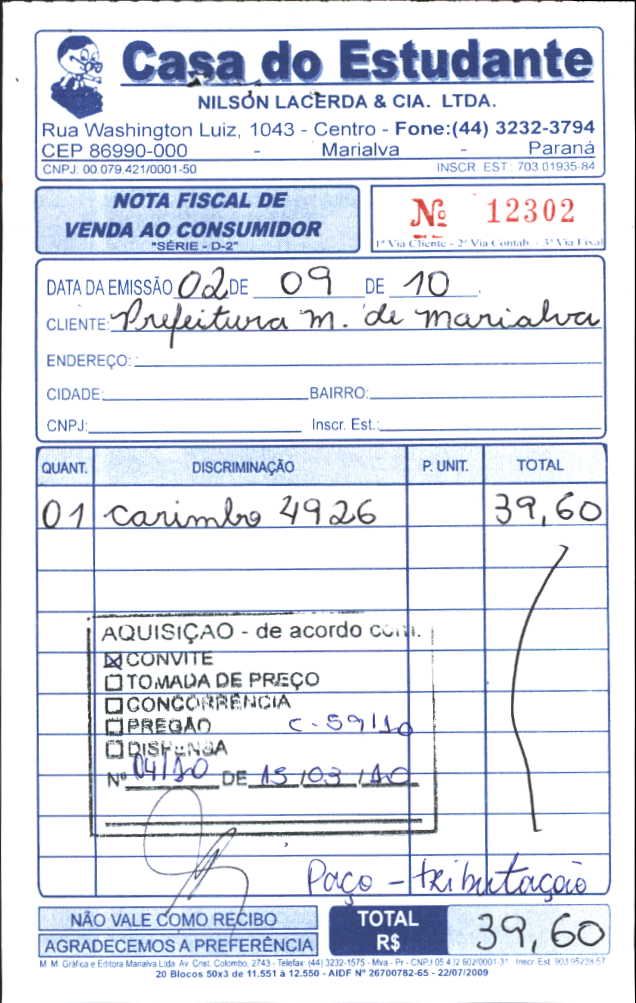 Casa do Estudante
NILSON LACERDA & CIA. LTDA.
Rua Washington Luiz, 1043 - Centro - Fone:(44) 3232-3794
CEP 86990-000 - Marialva - Paraná
CNPJ: 00.079.421/0001-50 INSCR. EST.: 703.01935-84
NOTA FISCAL DE
VENDA AO CONSUMIDOR
"SÉRIE - D-2"
Nº 12302
1ª Via Cliente - 2ª Via Contab. - 3ª Via Fixa
DATA DA EMISSÃO 02 DE 09 DE 10
CLIENTE: Prefeitura M. de Marialva
ENDEREÇO:
CIDADE: BAIRRO:
CNPJ: Inscr. Est.:
QUANT. DISCRIMINAÇÃO P. UNIT. TOTAL
01 carimbo 4926 39,60
AQUISIÇÃO - de acordo com.
CONVITE
TOMADA DE PREÇO
CONCORRÊNCIA
PREGÃO C-59/10
DISPENSA
Nº 04/10 DE 15/03/10
Paço - tributação
NÃO VALE COMO RECIBO
AGRADECEMOS A PREFERÊNCIA
TOTAL R$ 39,60
M. M. Gráfica e Editora Marialva Ltda. Av. Crist. Colombo, 2743 - Telefax: (44) 3232-1575 - Mva - Pr - CNPJ 05.412.602/0001-31 Inscr. Est. 903.95238-57
20 Blocos 50x3 de 11.551 à 12.550 - AIDF Nº 26700782-65 - 22/07/2009